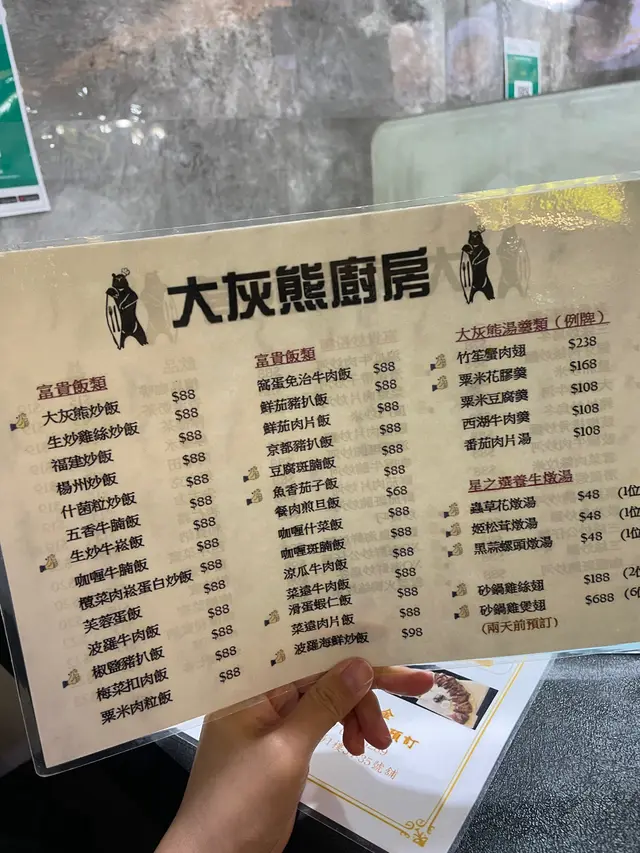 大灰熊廚房
富貴飯類
大灰熊炒飯 $88
生炒雞絲炒飯 $88
福建炒飯 $88
楊州炒飯 $88
什菌粒炒飯 $88
五香牛腩飯 $88
生炒牛崧飯 $88
咖喱牛腩飯 $88
欖菜肉崧蛋白炒飯 $88
芙蓉蛋飯 $88
波羅牛肉飯 $88
椒鹽豬扒飯 $88
梅菜扣肉飯 $88
粟米肉粒飯 $88
富貴飯類
窩蛋免治牛肉飯 $88
鮮茄豬扒飯 $88
鮮茄肉片飯 $88
京都豬扒飯 $88
豆腐斑腩飯 $88
魚香茄子飯 $88
餐肉煎旦飯 $68
咖喱什菜飯 $88
咖喱斑腩飯 $88
涼瓜牛肉飯 $88
菜遠牛肉飯 $88
滑蛋蝦仁飯 $88
菜遠肉片飯 $88
波羅海鮮炒飯 $98
大灰熊湯羹類（例牌）
竹笙蟹肉翅 $238
粟米花膠羹 $168
粟米豆腐羹 $108
西湖牛肉羹 $108
番茄肉片湯 $108
星之選養生燉湯
蟲草花燉湯 $48 (1位
姬松茸燉湯 $48 (1位
黑蒜螺頭燉湯 $48 (1位
砂鍋雞絲翅 $188 (2位
砂鍋雞煲翅 $688 (6位
(兩天前預訂)
預訂
35號舖